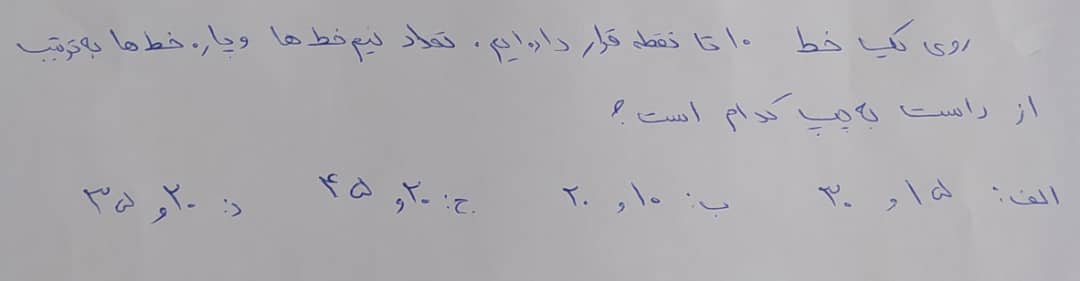 روی یک خط ۱۰ تا نقطه قرار داده‌ایم. تعداد نیم‌خط‌ها و پاره‌خط‌ها به ترتیب
از راست به چپ کدام است؟
الف: ۱۵ و ۳۰ ب: ۱۰ و ۲۰ ج: ۲۰ و ۴۵ د: ۲۰ و ۳۵